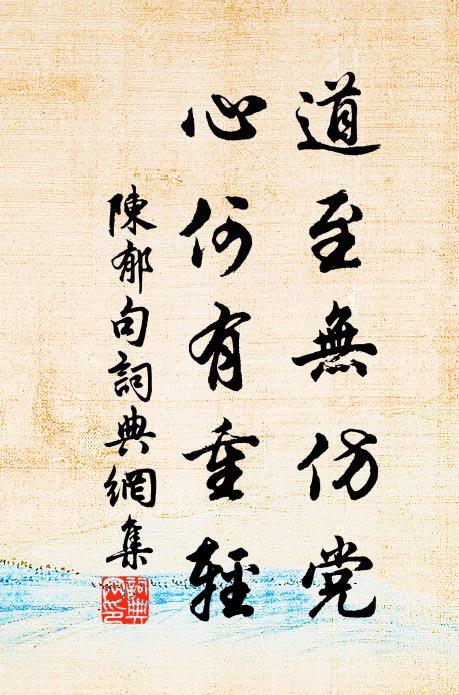 道至無仿党
心何有重輕
陳郁句詞典網集